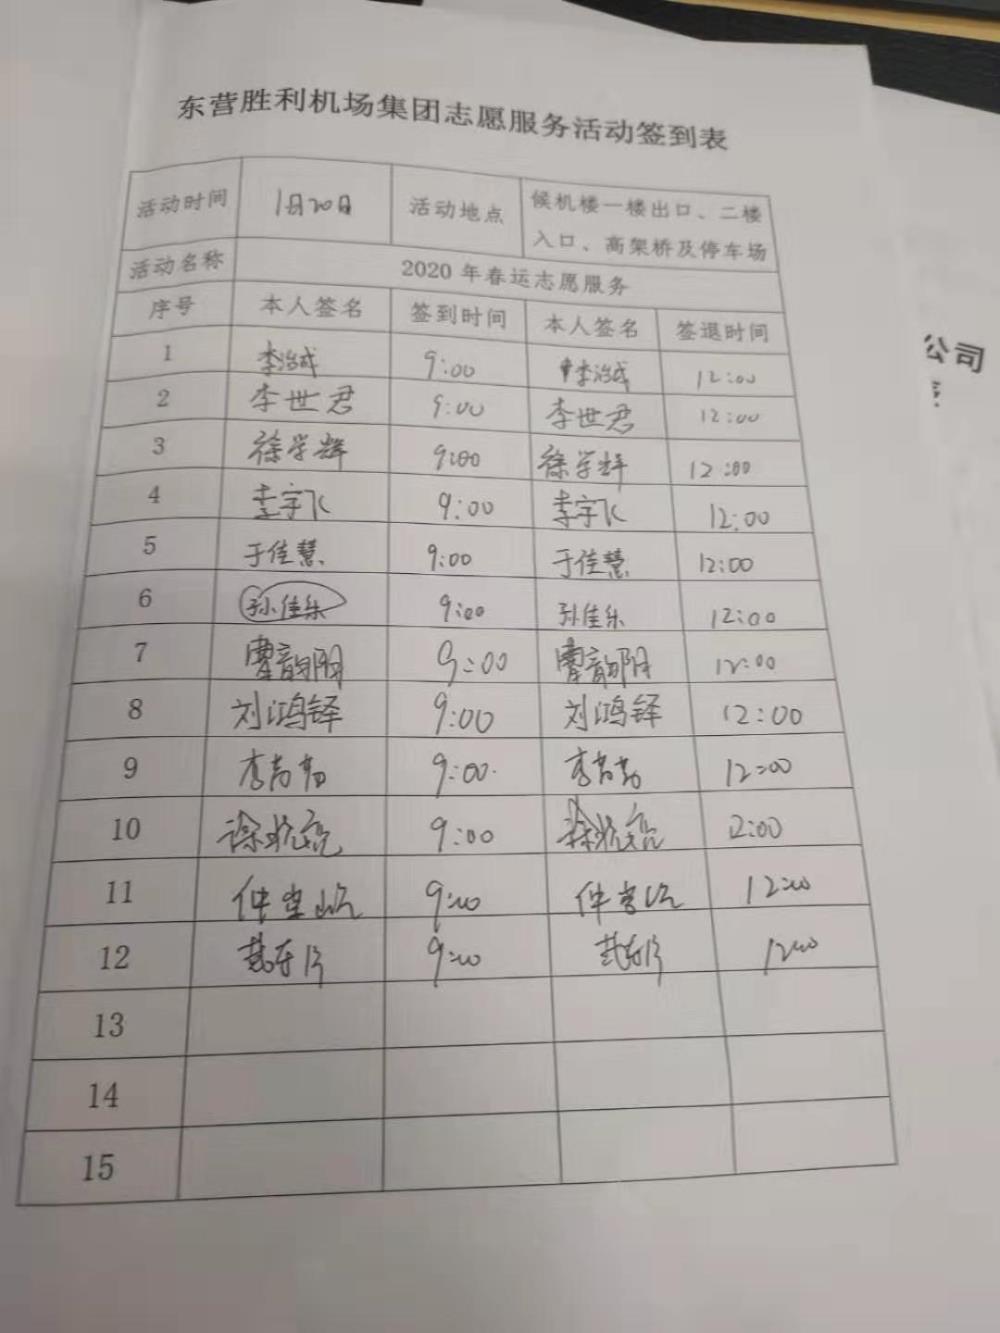 东营胜利机场集团志愿服务活动签到表
活动时间 1月20日 活动地点 候机楼一楼出口、二楼
入口、高架桥及停车场
活动名称 2020年春运志愿服务
序号 本人签名 签到时间 本人签名 签退时间
1 李治成 9:00 李治成 12:00
2 李世君 9:00 李世君 12:00
3 徐学辉 9:00 徐学辉 12:00
4 李宇飞 9:00 李宇飞 12:00
5 于佳慧 9:00 于佳慧 12:00
6 孙佳乐 9:00 孙佳乐 12:00
7 9:00 12:00
8 刘鸿铎 9:00 刘鸿铎 12:00
9 9:00 12:00
10 9:00 2:00
11 9:00 12:00
12 9:00 12:00
13
14
15
公司